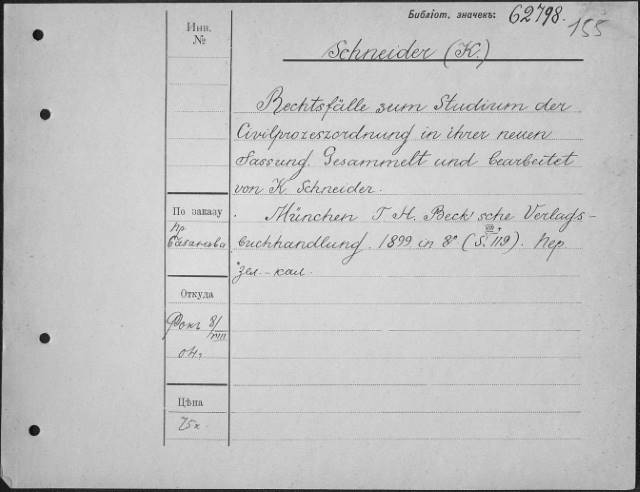 Библіот. значекъ: 62798.
155
Инв.
№
Schneider (K.)
Rechtsfälle zum Studium der
Civilprozeszordnung in ihrer neuen
Fassung. Gesammelt und bearbeitet
von K. Schneider.
По заказу
München T. H. Beck'sche Verlags-
пр.
buchhandlung. 1899 in 8° (S. 119). пер.
зел.-кал.
Откуда
Фокъ 8/VIII
04,
Цѣна
75 к.